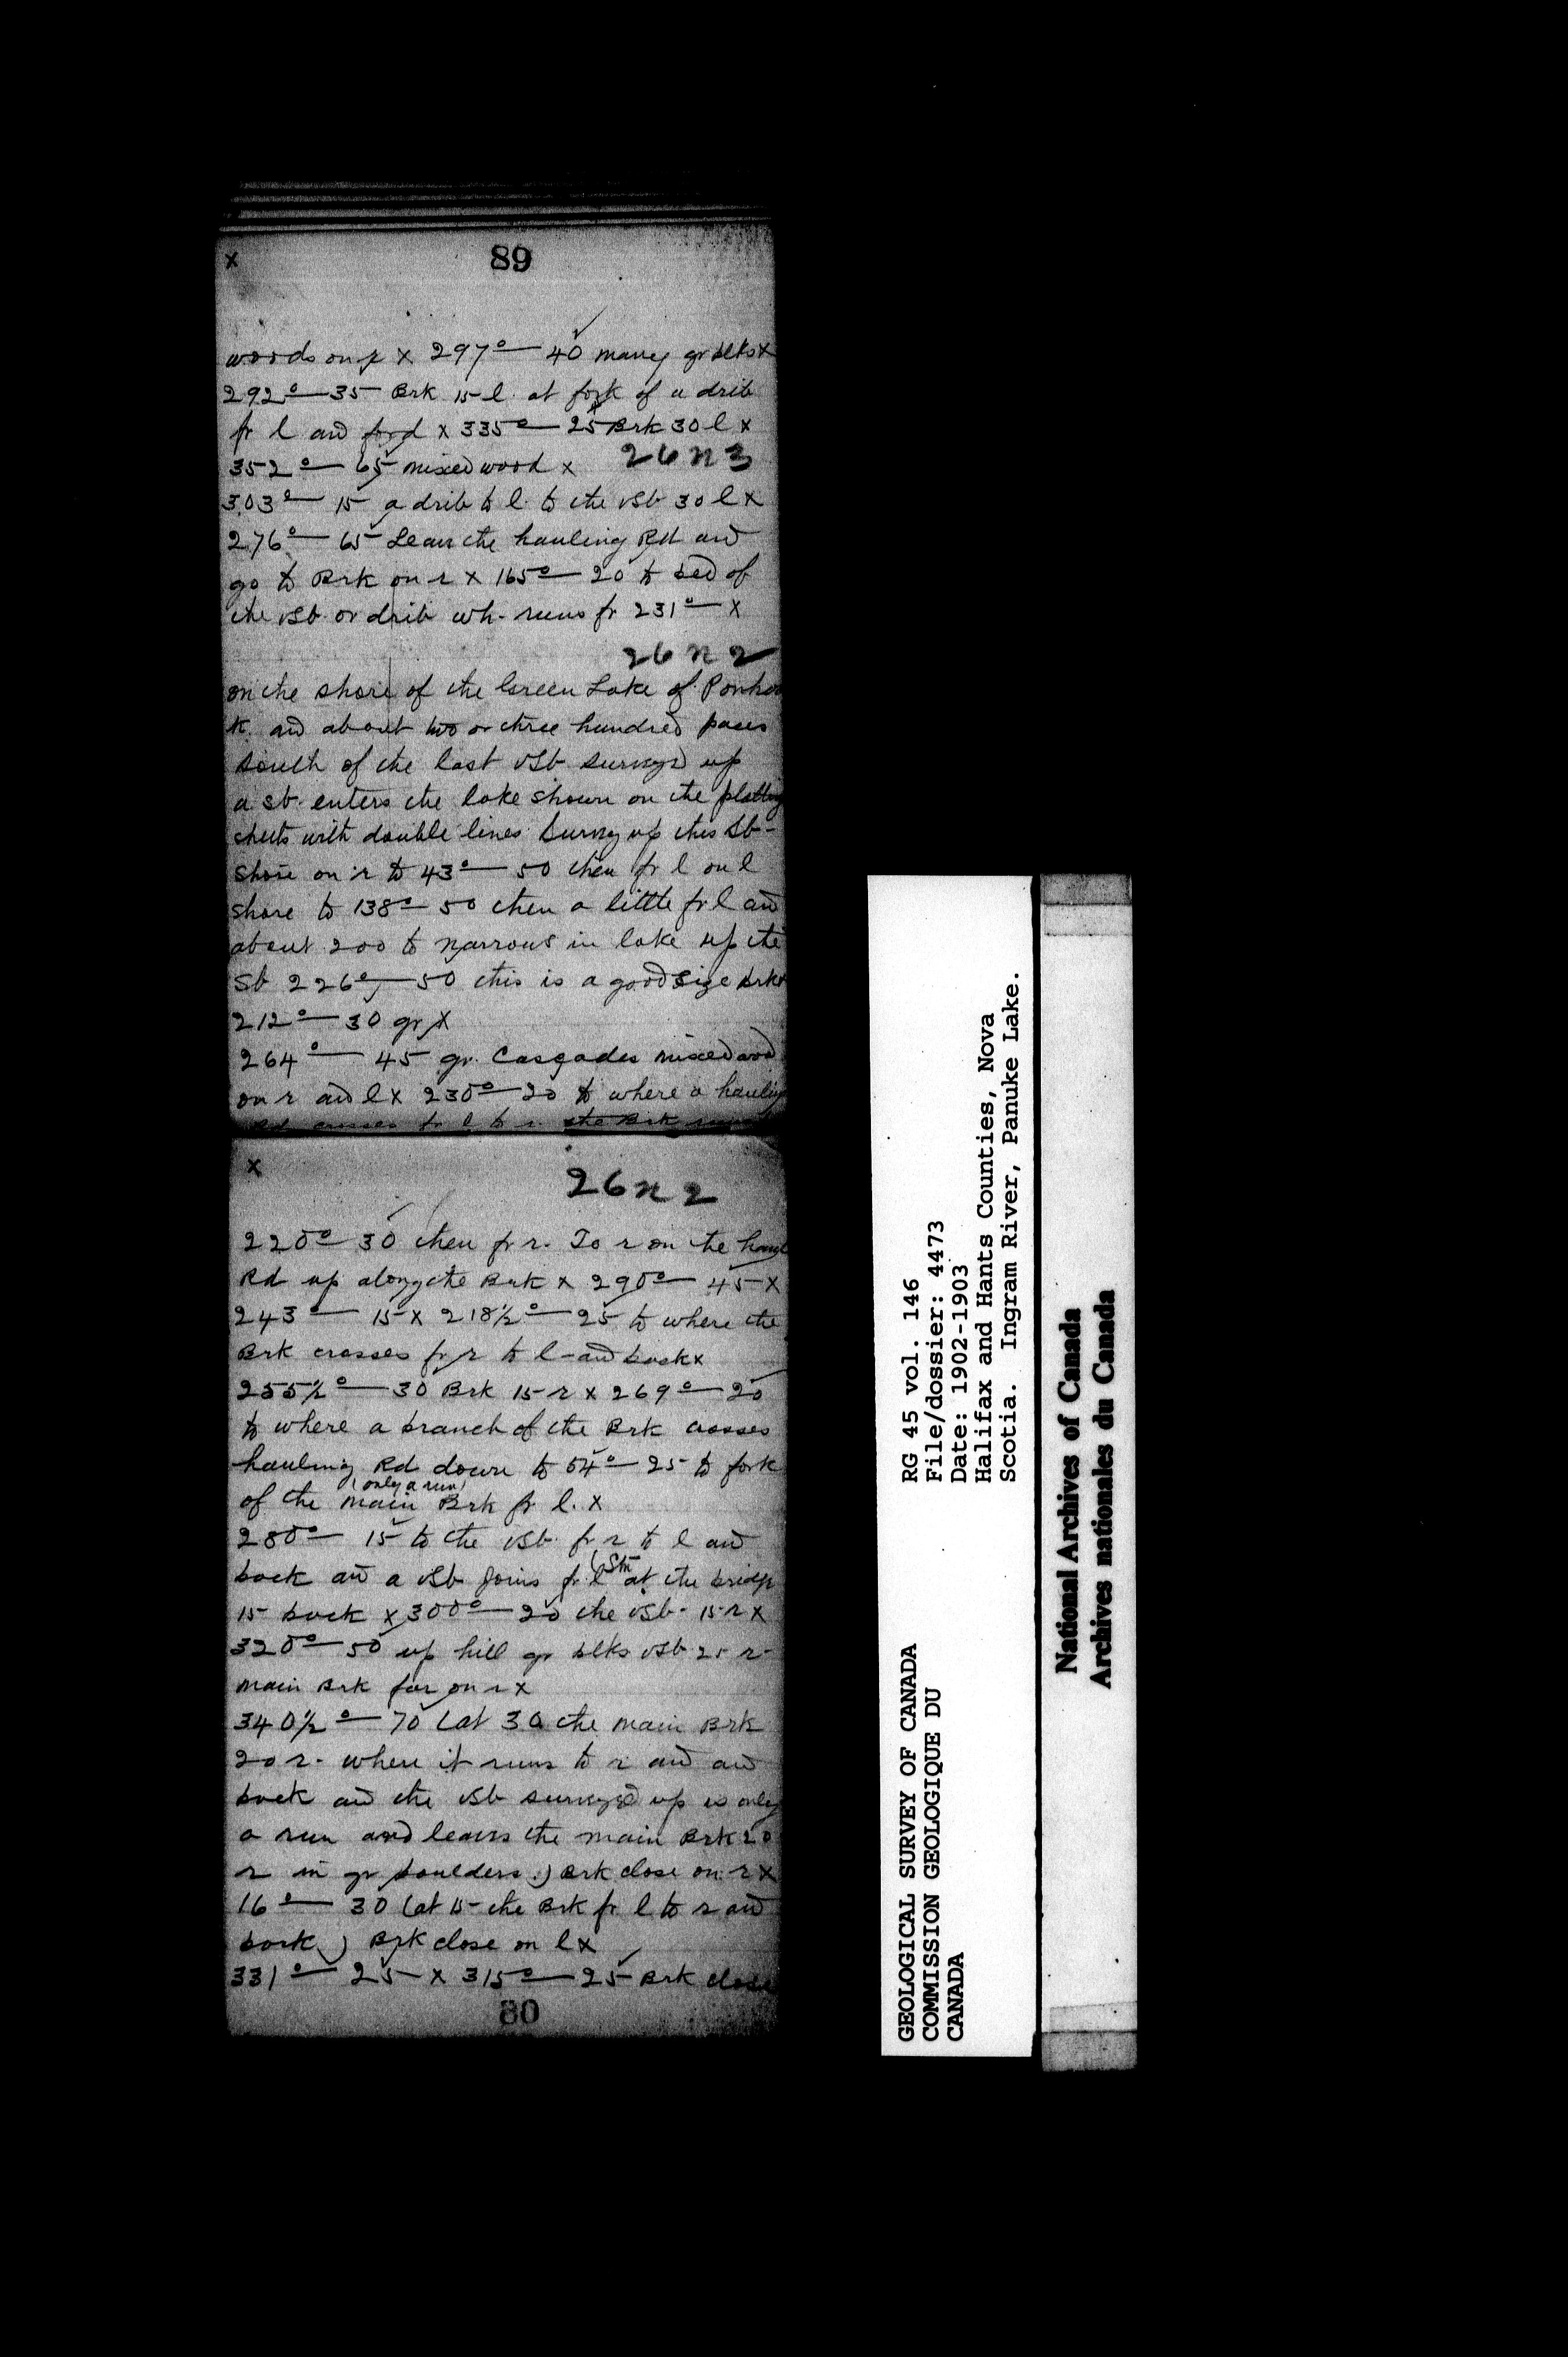 x 89
woods on r x 297° — 40 many gr blks x
292° — 35 Brk 15 l. at fork of a drib
fr l and x 335° — 25 Brk 30 l x
352° — 65 mixed wood x 26 n 3
303° — 15 a drib to l. to the vSb 30 l x
276° — 65 Leave the hauling Rd and
go to Brk on r x 165° — 20 to bed of
the vSb. or drib wh. runs fr 231° — x
26 n 2
on the shore of the Green Lake of
k. and about two or three hundred paces
south of the last vSb surveyd up
a sb. enters the lake shown on the platting
sheets with double lines Survey up this Sb -
Shore on r to 43° — 50 then fr l on l
shore to 138° — 50 then a little fr l and
about 200 to narrows in lake up the
Sb 226° — 50 this is a good size brk x
212° — 30 gr x
264° — 45 gr. Cascades mixed wood
on r and l x 230° — 20 to where a hauling
Rd crosses fr l to r. the Brk
x 26 n 2
220° — 30 then fr r. To r on the haul
Rd up along the Brk x 290° — 45 x
243° — 15 x 218½° — 25 to where the
Brk crosses fr r to l and back x
255½° — 30 Brk 15 r x 269° — 20
to where a branch of the Brk crosses
hauling Rd down to 54° — 25 to fork
(only a run)
of the main Brk fr l. x
280° — 15 to the vSb. fr r to l and
back and a vSb joins fr l (Stn at the bridge
15 back x 300° — 20 the vSb. 15 r x
320° — 50 up hill gr blks vSb 25 r -
main Brk far on r x
340½° — 70 (at 30 the main Brk
20 r. where it runs to r and and
back and the vSb surveyed up is only
a run and leaves the main Brk 20
r in gr boulders.) Brk close on r x
16° — 30 (at 15 the Brk fr l to r and
back) Brk close on l x
331° — 25 x 315° — 25 Brk close
80
RG 45 vol. 146
File/dossier: 4473
Date: 1902-1903
Halifax and Hants Counties, Nova
Scotia. Ingram River, Panuke Lake.
GEOLOGICAL SURVEY OF CANADA
COMMISSION GEOLOGIQUE DU
CANADA
National Archives of Canada
Archives nationales du Canada